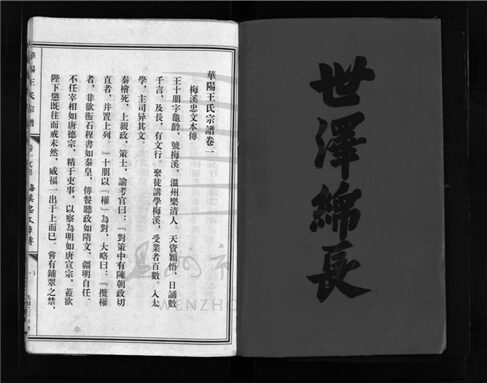 世澤綿長
華陽王氏宗譜卷一
梅溪忠文本傳
王十朋字龜齡，號梅溪，溫州樂清人。天資穎悟，日誦數
千言，及長，有文行，聚徒講學梅溪，受業者百數。入太
學，主司异其文。
秦檜死，上親政，策士，諭考官曰：「對策中有陳朝政切
者，并置上列。」十朋以「權」為對，大略曰：「攬權
者，非欲衡石程書如秦皇，傳餐聽政如隋文，疆明自任，
不任宰相如唐德宗，精于吏事，以察為明如唐宣宗，蓋欲
陛下懲既往而戒未然，威福一出于上而已。嘗有鋪翠之禁，
華陽王氏宗譜
卷一
梅溪忠文本傳
一
WENZHO